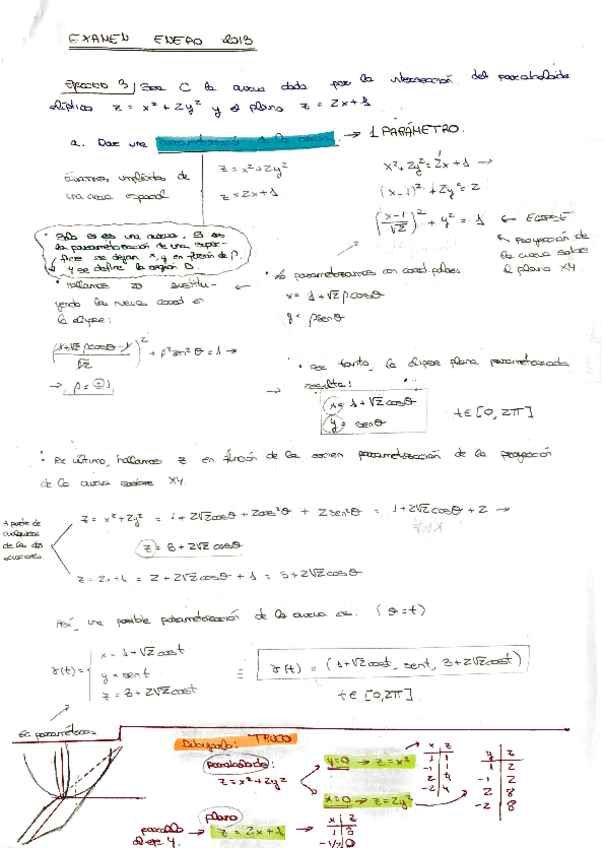 EXAMEN ENERO 2013
Ejercicio 3 / Sea C la curva dada por la intersección del paraboloide
elíptico z = x² + 2y² y el plano z = 2x + 1
a. Dar una parametrización de la curva. → 1 PARÁMETRO.
Ecuaciones implícitas de
una curva espacial
z = x² + 2y²
z = 2x + 1
x² + 2y² = 2x + 1 →
(x-1)² + 2y² = 2
(x-1/√2)² + y² = 1 ← ELIPSE
↰ proyección de
la curva sobre
el plano XY.
la parametrización de una super-
ficie se dejan x, y en función de ρ.
y se define la región D.
• Hallamos ρ sustitu-
yendo las nuevas coord en
la elipse:
• La parametrizamos con coord. polares
x = 1 + √2 ρ cosθ
y = ρ senθ
(1+√2 ρcosθ - 1/√2)² + ρ² sen²θ = 1 →
→ ρ = ⊕1
• Por tanto, la elipse plana parametrizada
resulta:
x = 1 + √2 cosθ
y = senθ
t ∈ [0, 2π]
• Por último, hallamos z en función de la parametrización de la proyección
de la curva sobre XY.
A partir de
cualquiera
de las dos
ecuaciones
z = x² + 2y² = 1 + 2√2 cosθ + 2cos²θ + 2sen²θ = 1 + 2√2 cosθ + 2 →
z = 3 + 2√2 cosθ
z = 2x + 1 = 2 + 2√2 cosθ + 1 = 3 + 2√2 cosθ
Así, una posible parametrización de la curva es: (θ = t)
γ(t) =
x = 1 + √2 cost
y = sent
z = 3 + 2√2 cost
≡ γ(t) = (1 + √2 cost, sent, 3 + 2√2 cost)
t ∈ [0, 2π]
Ec. paramétricas
Dibujarlo: TRUCO
Paraboloide:
z = x² + 2y²
y = 0 → z = x²
x = 0 → z = 2y²
x | z
1 | 1
-1 | 1
2 | 4
-2 | 4
y | z
1 | 2
-1 | 2
2 | 8
-2 | 8
plano
paralelo
al eje y.
→ z = 2x + 1 →
x | z
1 | 3
-1/2 | 0